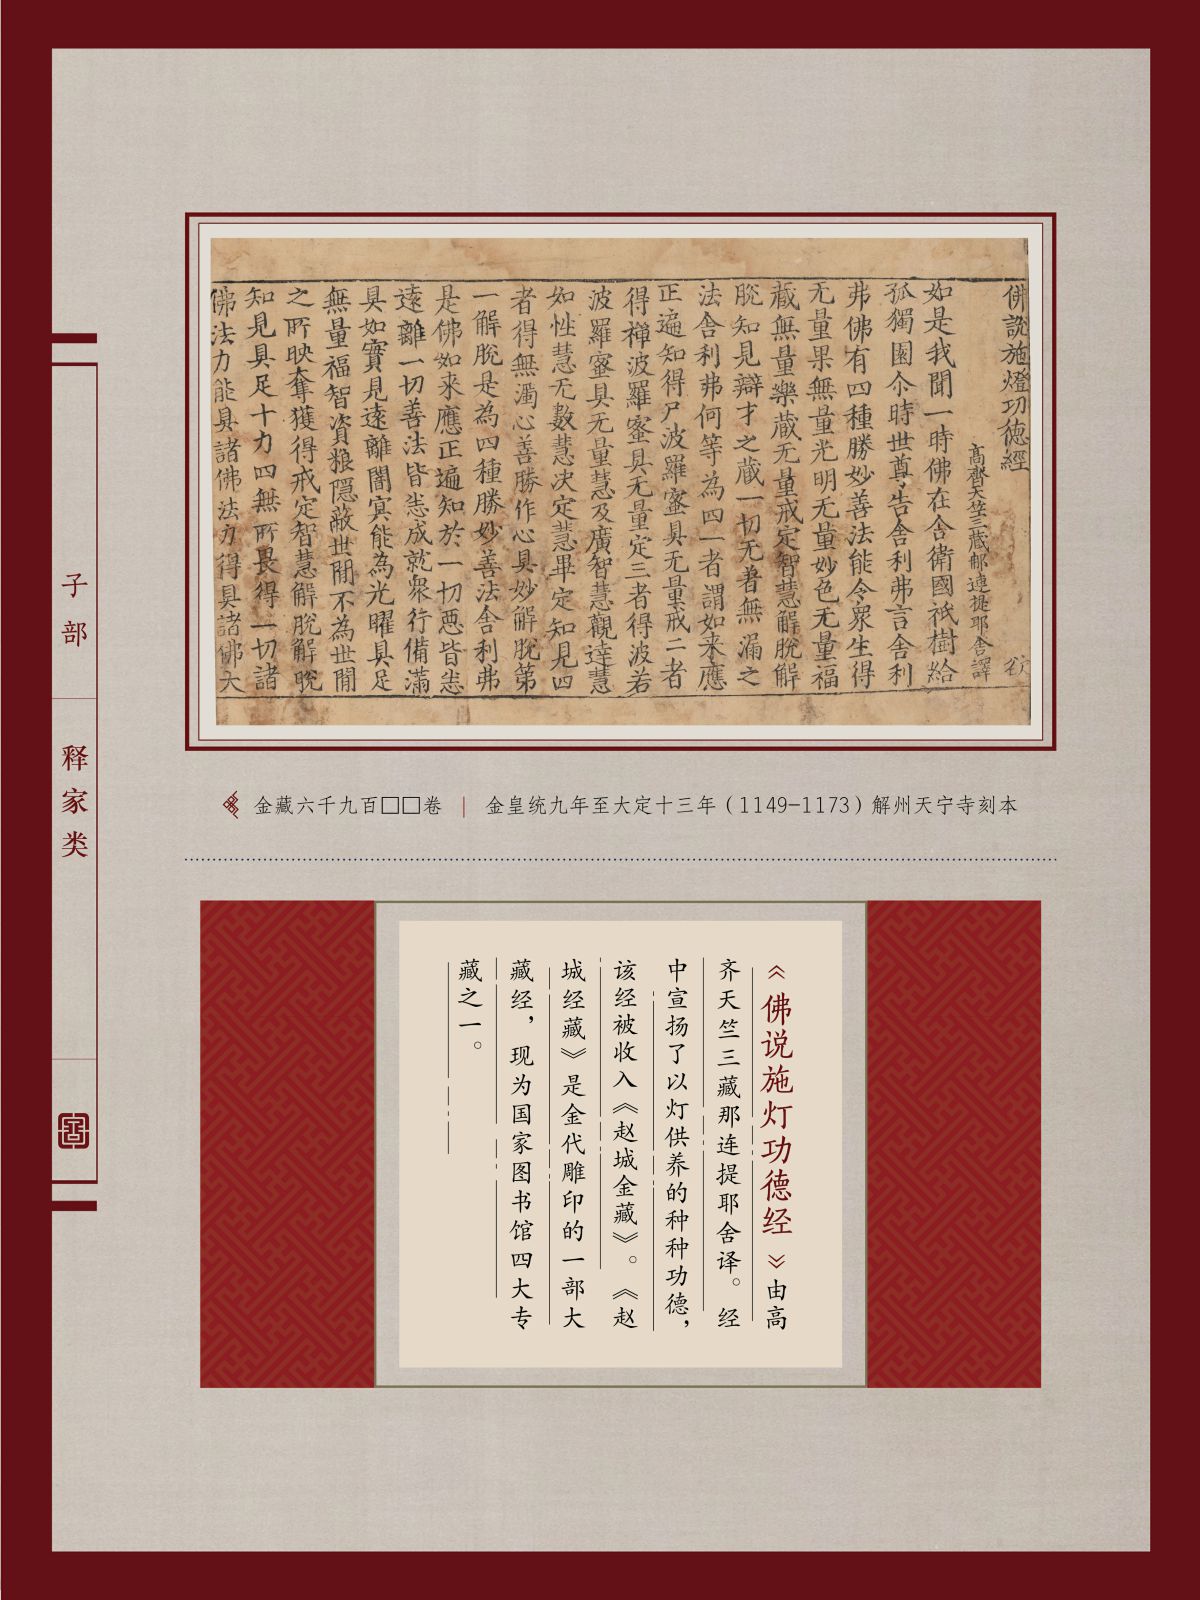 佛説施燈功德經
高齊天竺三藏那連提耶舍譯
如是我聞一時佛在舍衛國祇樹給
孤獨園尒時世尊告舍利弗言舍利
弗佛有四種勝妙善法能令衆生得
无量果無量光明无量妙色无量福
藏無量樂藏无量戒定智慧解脱解
脱知見辯才之藏一切无著無漏之
法舍利弗何等為四一者謂如来應
正遍知得尸波羅蜜具无量戒二者
得禪波羅蜜具无量定三者得波若
波羅蜜具无量慧及廣智慧觀達慧
如性慧无數慧决定慧畢定知見四
者得無濁心善勝作心具妙解脱第
一解脱是為四種勝妙善法舍利弗
是佛如来應正遍知於一切惡皆悉
遠離一切善法皆悉成就衆行備滿
具如實見遠離闇冥能為光曜具足
無量福智資粮隠蔽世間不為世間
之所映奪獲得戒定智慧解脱解脱
知見具足十力四無所畏得一切諸
佛法力能具諸佛法力得具諸佛大
子部
释家类
金藏六千九百□□卷 | 金皇统九年至大定十三年（1149-1173）解州天宁寺刻本
《佛说施灯功德经》由高
齐天竺三藏那连提耶舍译。经
中宣扬了以灯供养的种种功德，
该经被收入《赵城金藏》。《赵
城经藏》是金代雕印的一部大
藏经，现为国家图书馆四大专
藏之一。